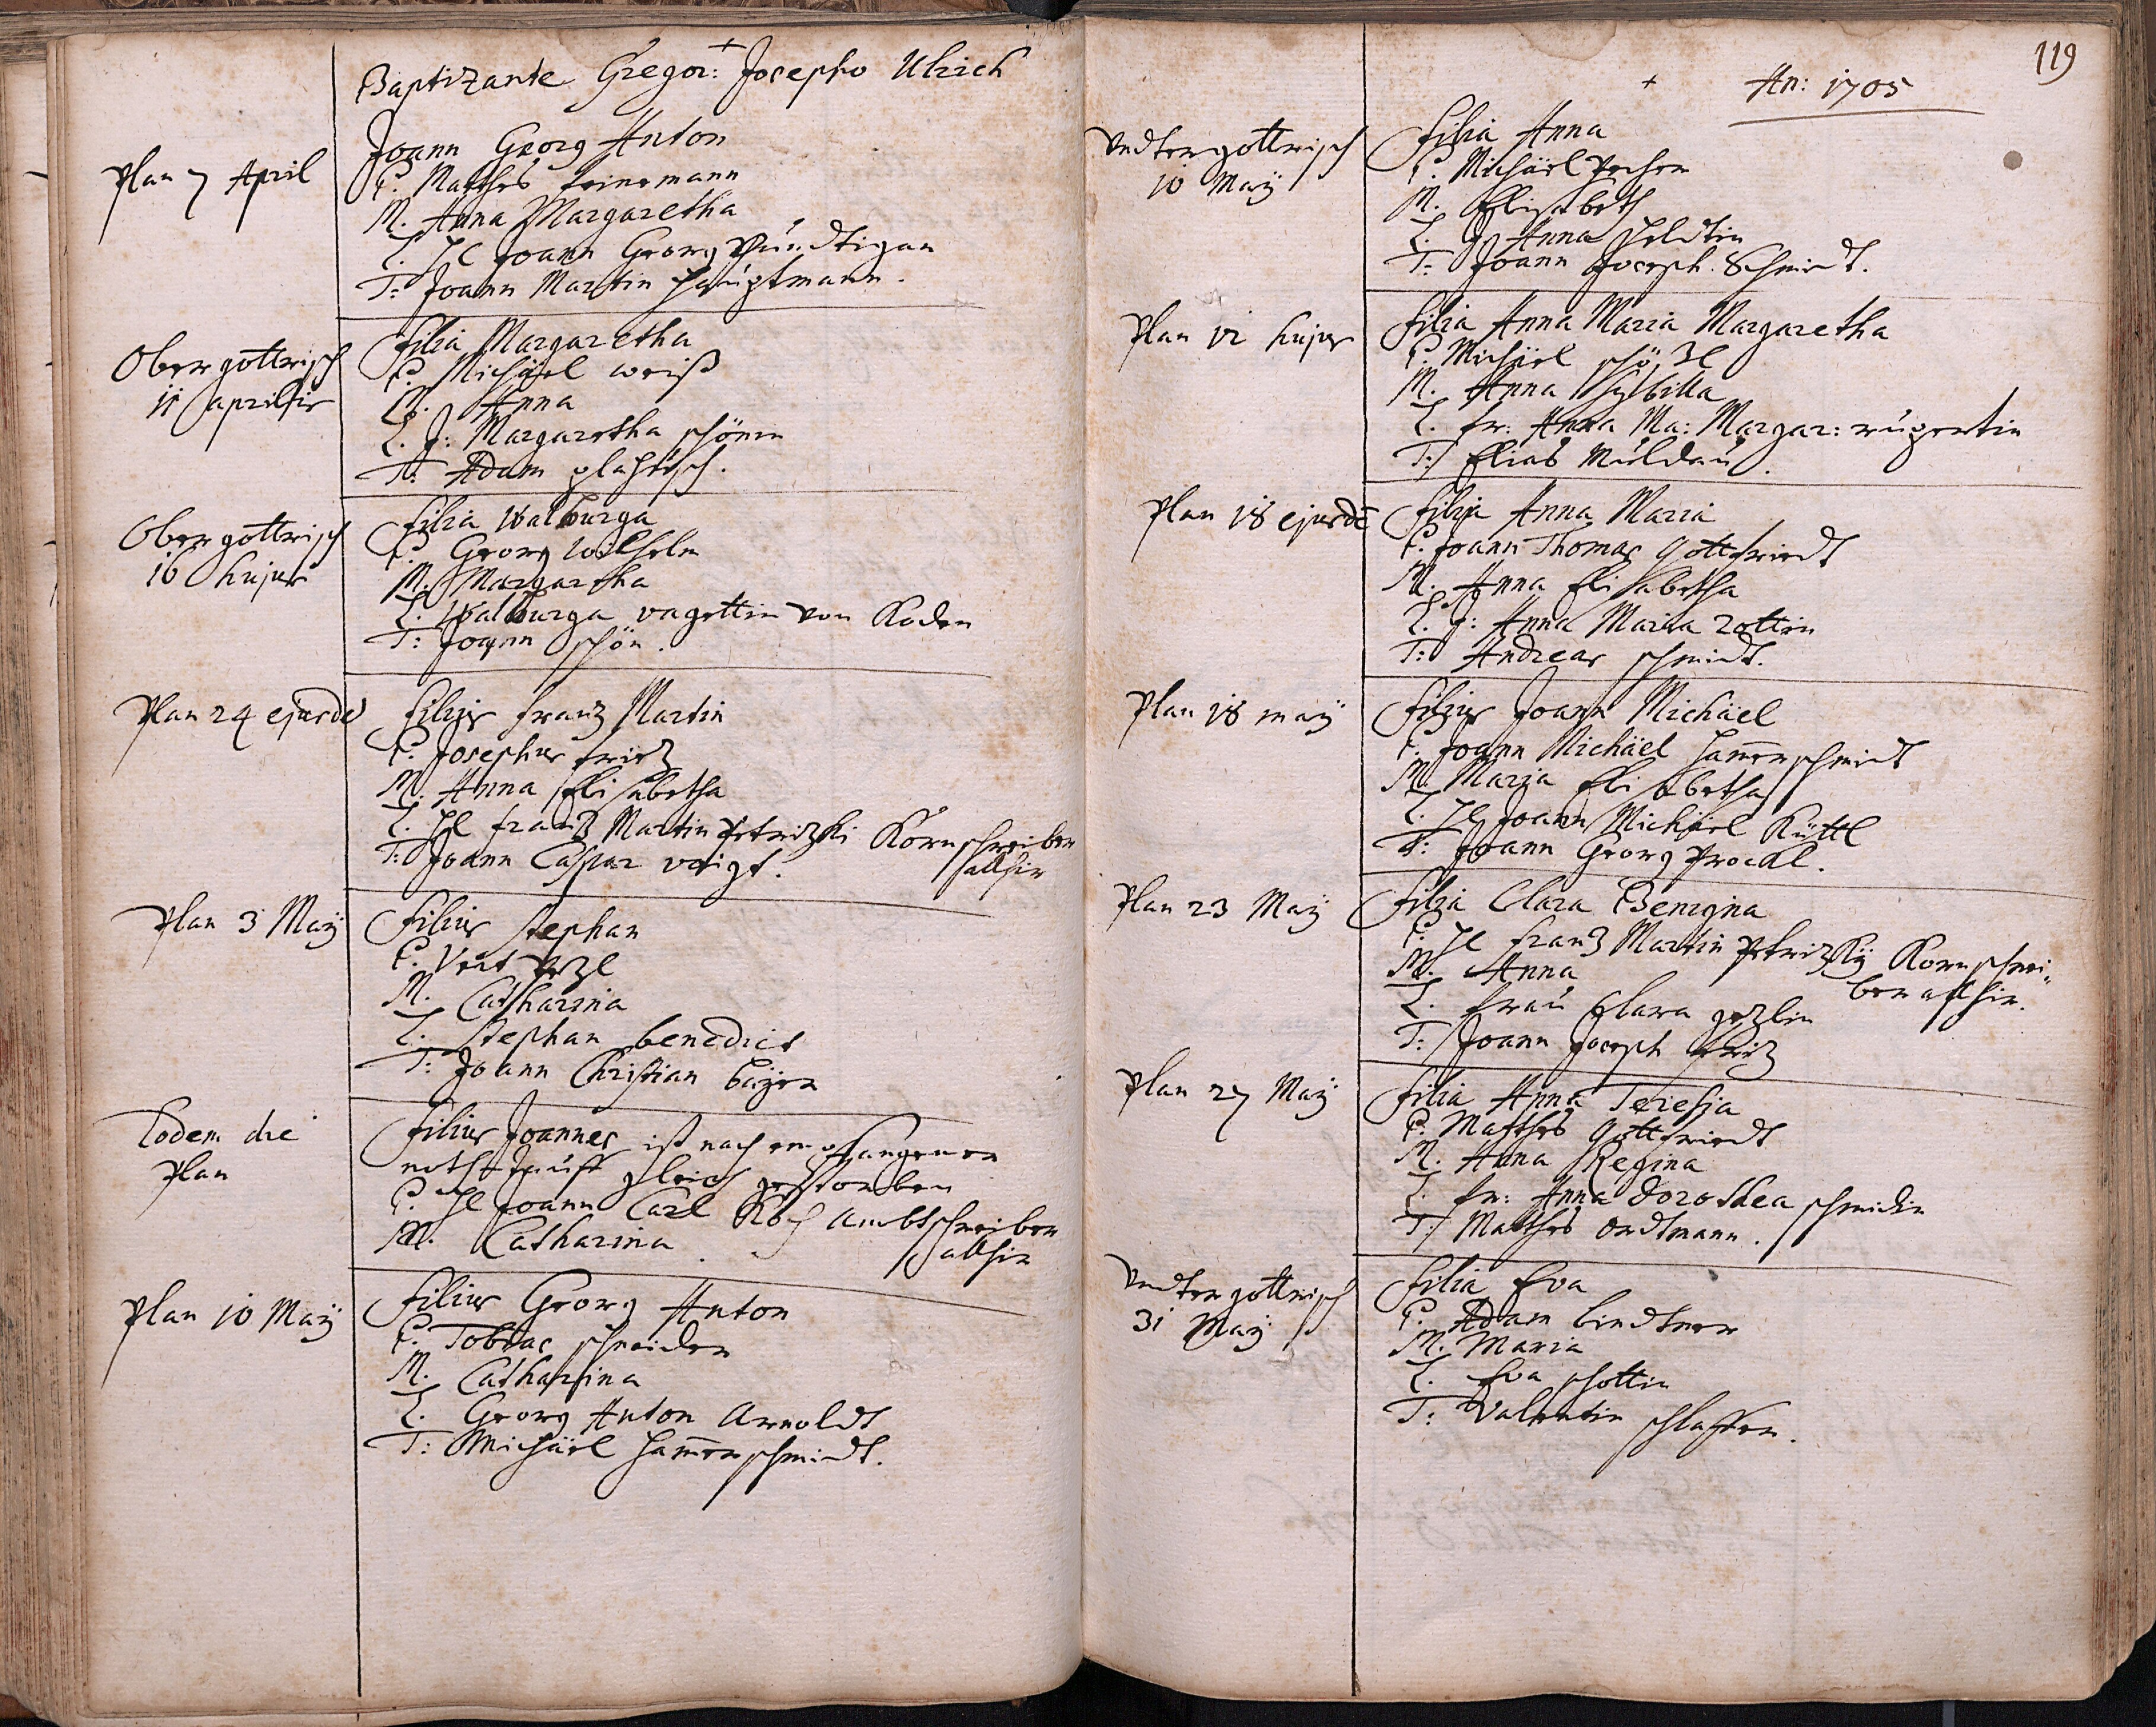 Baptizante Gregor: Josepho Ulrich
Plan 7 April
Joann Georg Anton
P. Matthes
M. Anna Margaretha
L. Hl Joann Georg
T: Joann Martin Hauptmann.
Obergottrisch
11 aprilsis
filia Margaretha
P. Michäel weiß
M. Anna
L. J: Margaretha schönin
T: Adam
Obergottrisch
16 hujus
filia Walburga
P. Georg Wilhelm
M. Margaretha
L. Walburga vagettin von Roden
T: Joann schön.
Plan 24 ejusdē
filius frantz Martin
P. Josephus fritz
M. Anna Elisabetha
L. Hl frantz Martin Petrizki Kornschreiber
allhir
T: Joann Caspar voigt.
Plan 3 Maÿ
filius Stephan
P. Veit
M. Catharina
L. Stephan benedict
T: Joann Christian baÿer
Eodem die
Plan
filius Joannes ist nach empfangener
noth Tauff gleich gestorben
P. Hl Joann Carl Koch Ambtschreiber
allhir
M. Catharina.
Plan 10 Maÿ
filius Georg Anton
P. Tobias schneider
M. Catharina
L. Georg Anton Arnoldt
T: Michäel Ham̄erschmidt.
119
An: 1705
Undtergottrisch
10 Maÿ
filia Anna
P. Michäel
M. Elisabeth
L. J: Anna Heldtin
T: Joann Joseph Schmidt.
Plan 12 hujus
filia Anna Maria Margaretha
P. Michäel
M. Anna Sybilla
L. fr: Anna Ma: Margar: rupertin
T: Elias Muldau.
Plan 18 ejusdē
filia Anna Maria
P. Joann Thomas Gottfriedt
M. Anna Elisabetha
L. J: Anna Maria rottin
T: Andreas schmidt.
Plan 18 maÿ
filius Joann Michäel
P. Joann Michäel Ham̄erschmidt
M. Maria Elisabetha
L. Hl Joann Michäel Küttl
T: Joann Georg Prockl.
Plan 23 Maÿ
filia Clara Benigna
P. Hl frantz Martin Petrizkÿ Kornschrei-
ber allhir.
M. Anna
L. frau Clara
T: Joann Joseph fritz
Plan 27 Maÿ
filia Anna Teresia
P. Matthes Gottfriedt
M. Anna Regina
L. fr: Anna Dorothea schmidin
T: Matthes Ordtmann.
Undtergottrisch
31 Maÿ
filia Eva
P. Adam lindtner
M. Maria
L. Eva schottin
T: Valentin schlosser.